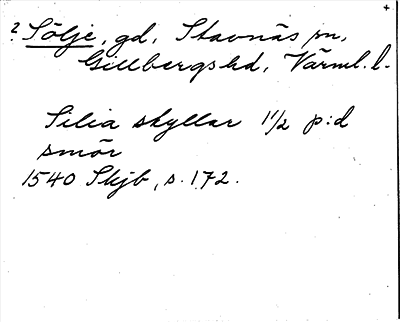 ? Sölje, gd, Stavnäs sn,
Gillbergs hd, Värml. l.
Silia skyllar 1 1/2 p:d
smör
1540 Skjb, s. 172.